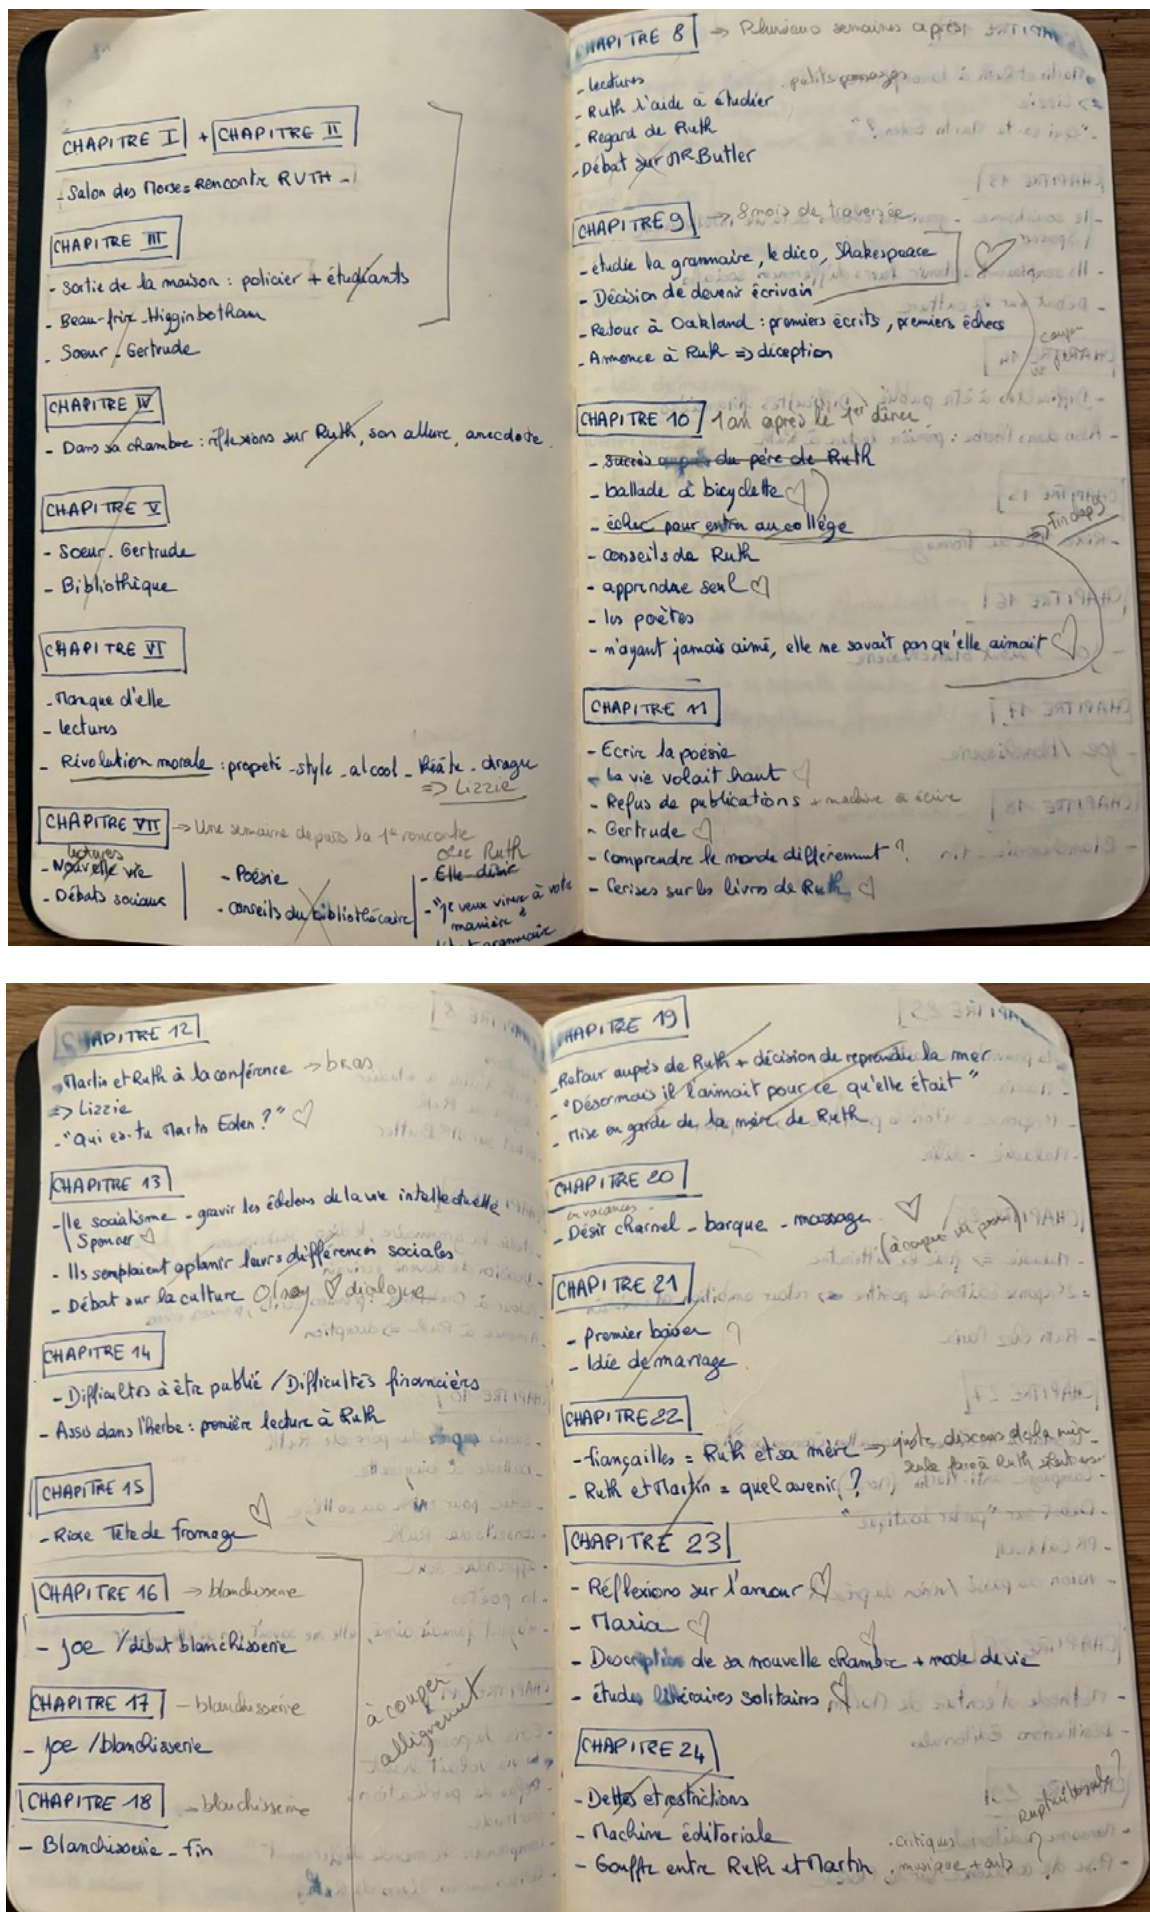 CHAPITRE I + CHAPITRE II
- Salon des Morse = Rencontre RUTH -
CHAPITRE III
- Sortie de la maison : policier + étudiants
- Beau-frère - Higginbotham
- Soeur - Gertrude
CHAPITRE IV
- Dans sa chambre : réflexions sur Ruth, son allure, anecdote.
CHAPITRE V
- Soeur - Gertrude
- Bibliothèque
CHAPITRE VI
- Manque d'elle
- lectures
- Révolution morale : propreté - style - alcool - théâtre - drague
=> Lizzie
CHAPITRE VII -> Une semaine depuis la 1e rencontre
avec Ruth
lectures
- Nouvelle vie
- Débats sociaux
- Poésie
- conseils du bibliothécaire
- Elle désir
- "je veux vivre à votre
manière"
grammaire
CHAPITRE 8 -> Plusieurs semaines après
- lectures petits passages
- Ruth l'aide à étudier
- Regard de Ruth
- Débat sur MR Butler
CHAPITRE 9 -> 8 mois de traversée
- étudie la grammaire, le dico, Shakespeare
- Décision de devenir écrivain
- Retour à Oakland : premiers écrits, premiers échecs
- Annonce à Ruth => déception
couper
CHAPITRE 10 1 an après le 1er dîner
- succès auprès du père de Ruth
- ballade à bicyclette ♡
- échec pour entrer au collège
- conseils de Ruth
- apprendre seul ♡
- les poètes
- n'ayant jamais aimé, elle ne savait pas qu'elle aimait ♡
CHAPITRE 11
- Ecrire la poésie
- La vie volait haut ♡
- Refus de publications + machine à écrire
- Gertrude ♡
- Comprendre le monde différemment ?
- Cerises sur les livres de Ruth ♡
CHAPITRE 12
- Martin et Ruth à la conférence -> bras
=> Lizzie
- "Qui es-tu Martin Eden ?" ♡
CHAPITRE 13
- le socialisme - gravir les échelons de la vie intellectuelle
Spencer ♡
- Ils semblaient aplanir leurs différences sociales
- Débat sur la culture Olney ♡ dialogue
CHAPITRE 14
- Difficultés à être publié / Difficultés financières
- Assis dans l'herbe : première lecture à Ruth
CHAPITRE 15
- Rixe Tête de fromage ♡
CHAPITRE 16 -> blanchisserie
- Joe / début blanchisserie
CHAPITRE 17 - blanchisserie
- Joe / blanchisserie
CHAPITRE 18 - blanchisserie
- Blanchisserie - fin
à couper
allègrement
CHAPITRE 19
- Retour auprès de Ruth + décision de reprendre la mer
- "Désormais il l'aimait pour ce qu'elle était"
- Mise en garde de la mère de Ruth
CHAPITRE 20
en vacances
- Désir charnel - barque - massage ♡
CHAPITRE 21
- premier baiser ?
- Idée de mariage
CHAPITRE 22
- fiançailles = Ruth et sa mère -> juste discours de la mère
seule face à Ruth
- Ruth et Martin = quel avenir ?
CHAPITRE 23
- Réflexions sur l'amour ♡
- Maria ♡
- Description de sa nouvelle chambre + mode de vie
- études littéraires solitaires ♡
CHAPITRE 24
- Dettes et restrictions
- Machine éditoriale
- Gouffre entre Ruth et Martin
. critiques
. musique + arts